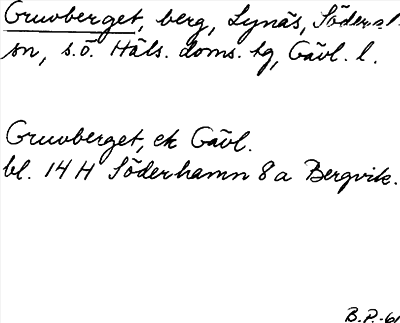 Gruvberget, berg, Lynäs, Söderal.
sn, s.ö. Häls. doms. tg, Gävl. l.
Gruvberget, ek Gävl.
bl. 14 H Söderhamn 8 a Bergvik.
B.P.-61